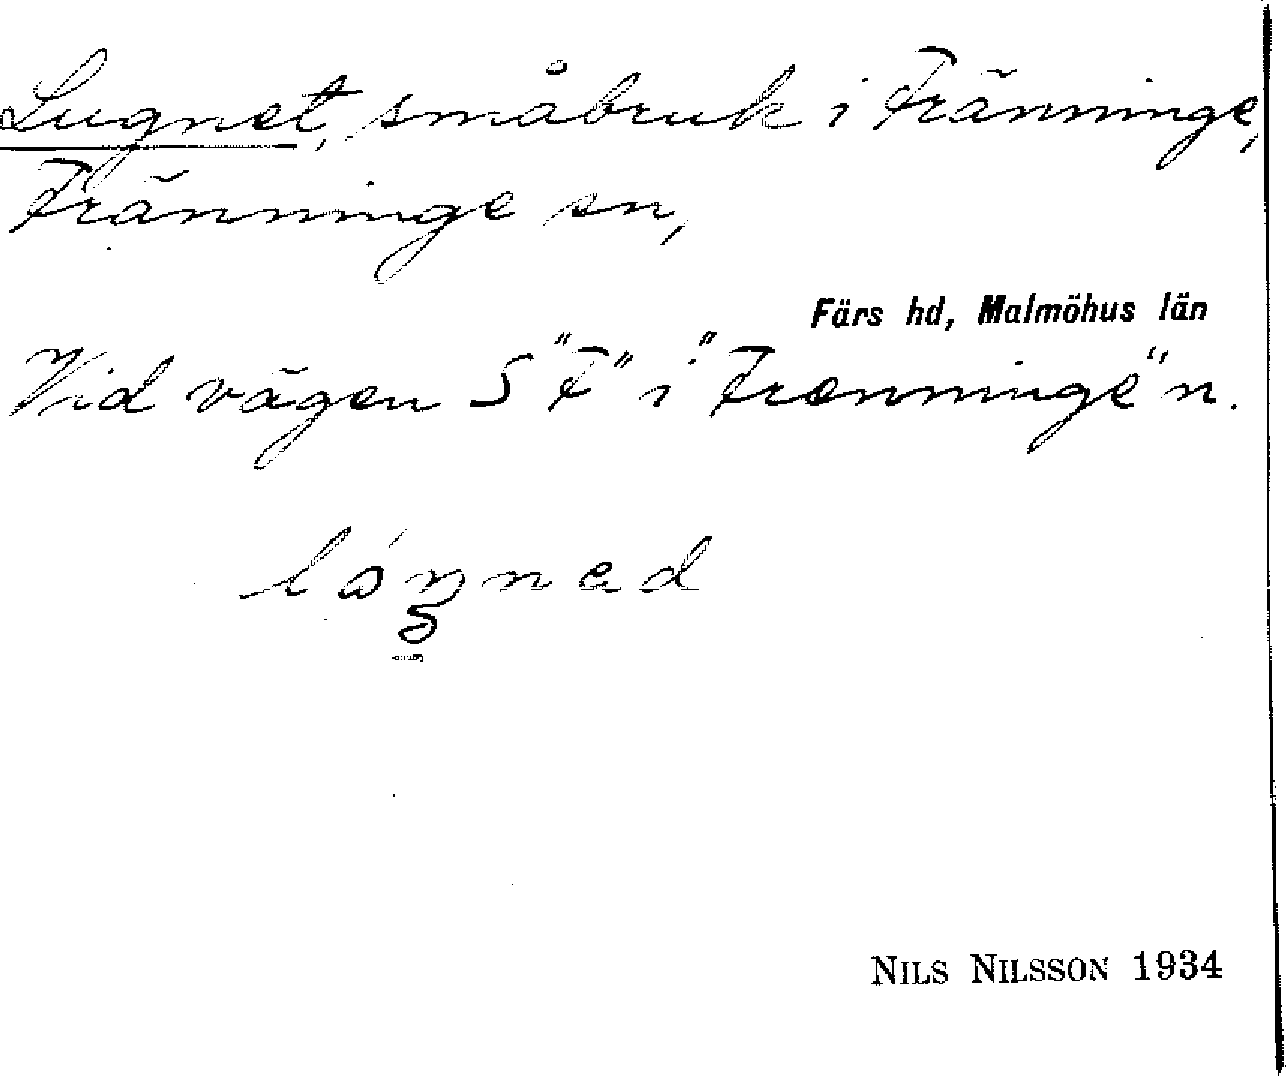 Lugnet, småbruk i Fränninge,
Fränninge sn,
Färs hd, Malmöhus län
Vid vägen S "F" i "Frenninge" n.
lóŋnad
NILS NILSSON 1934